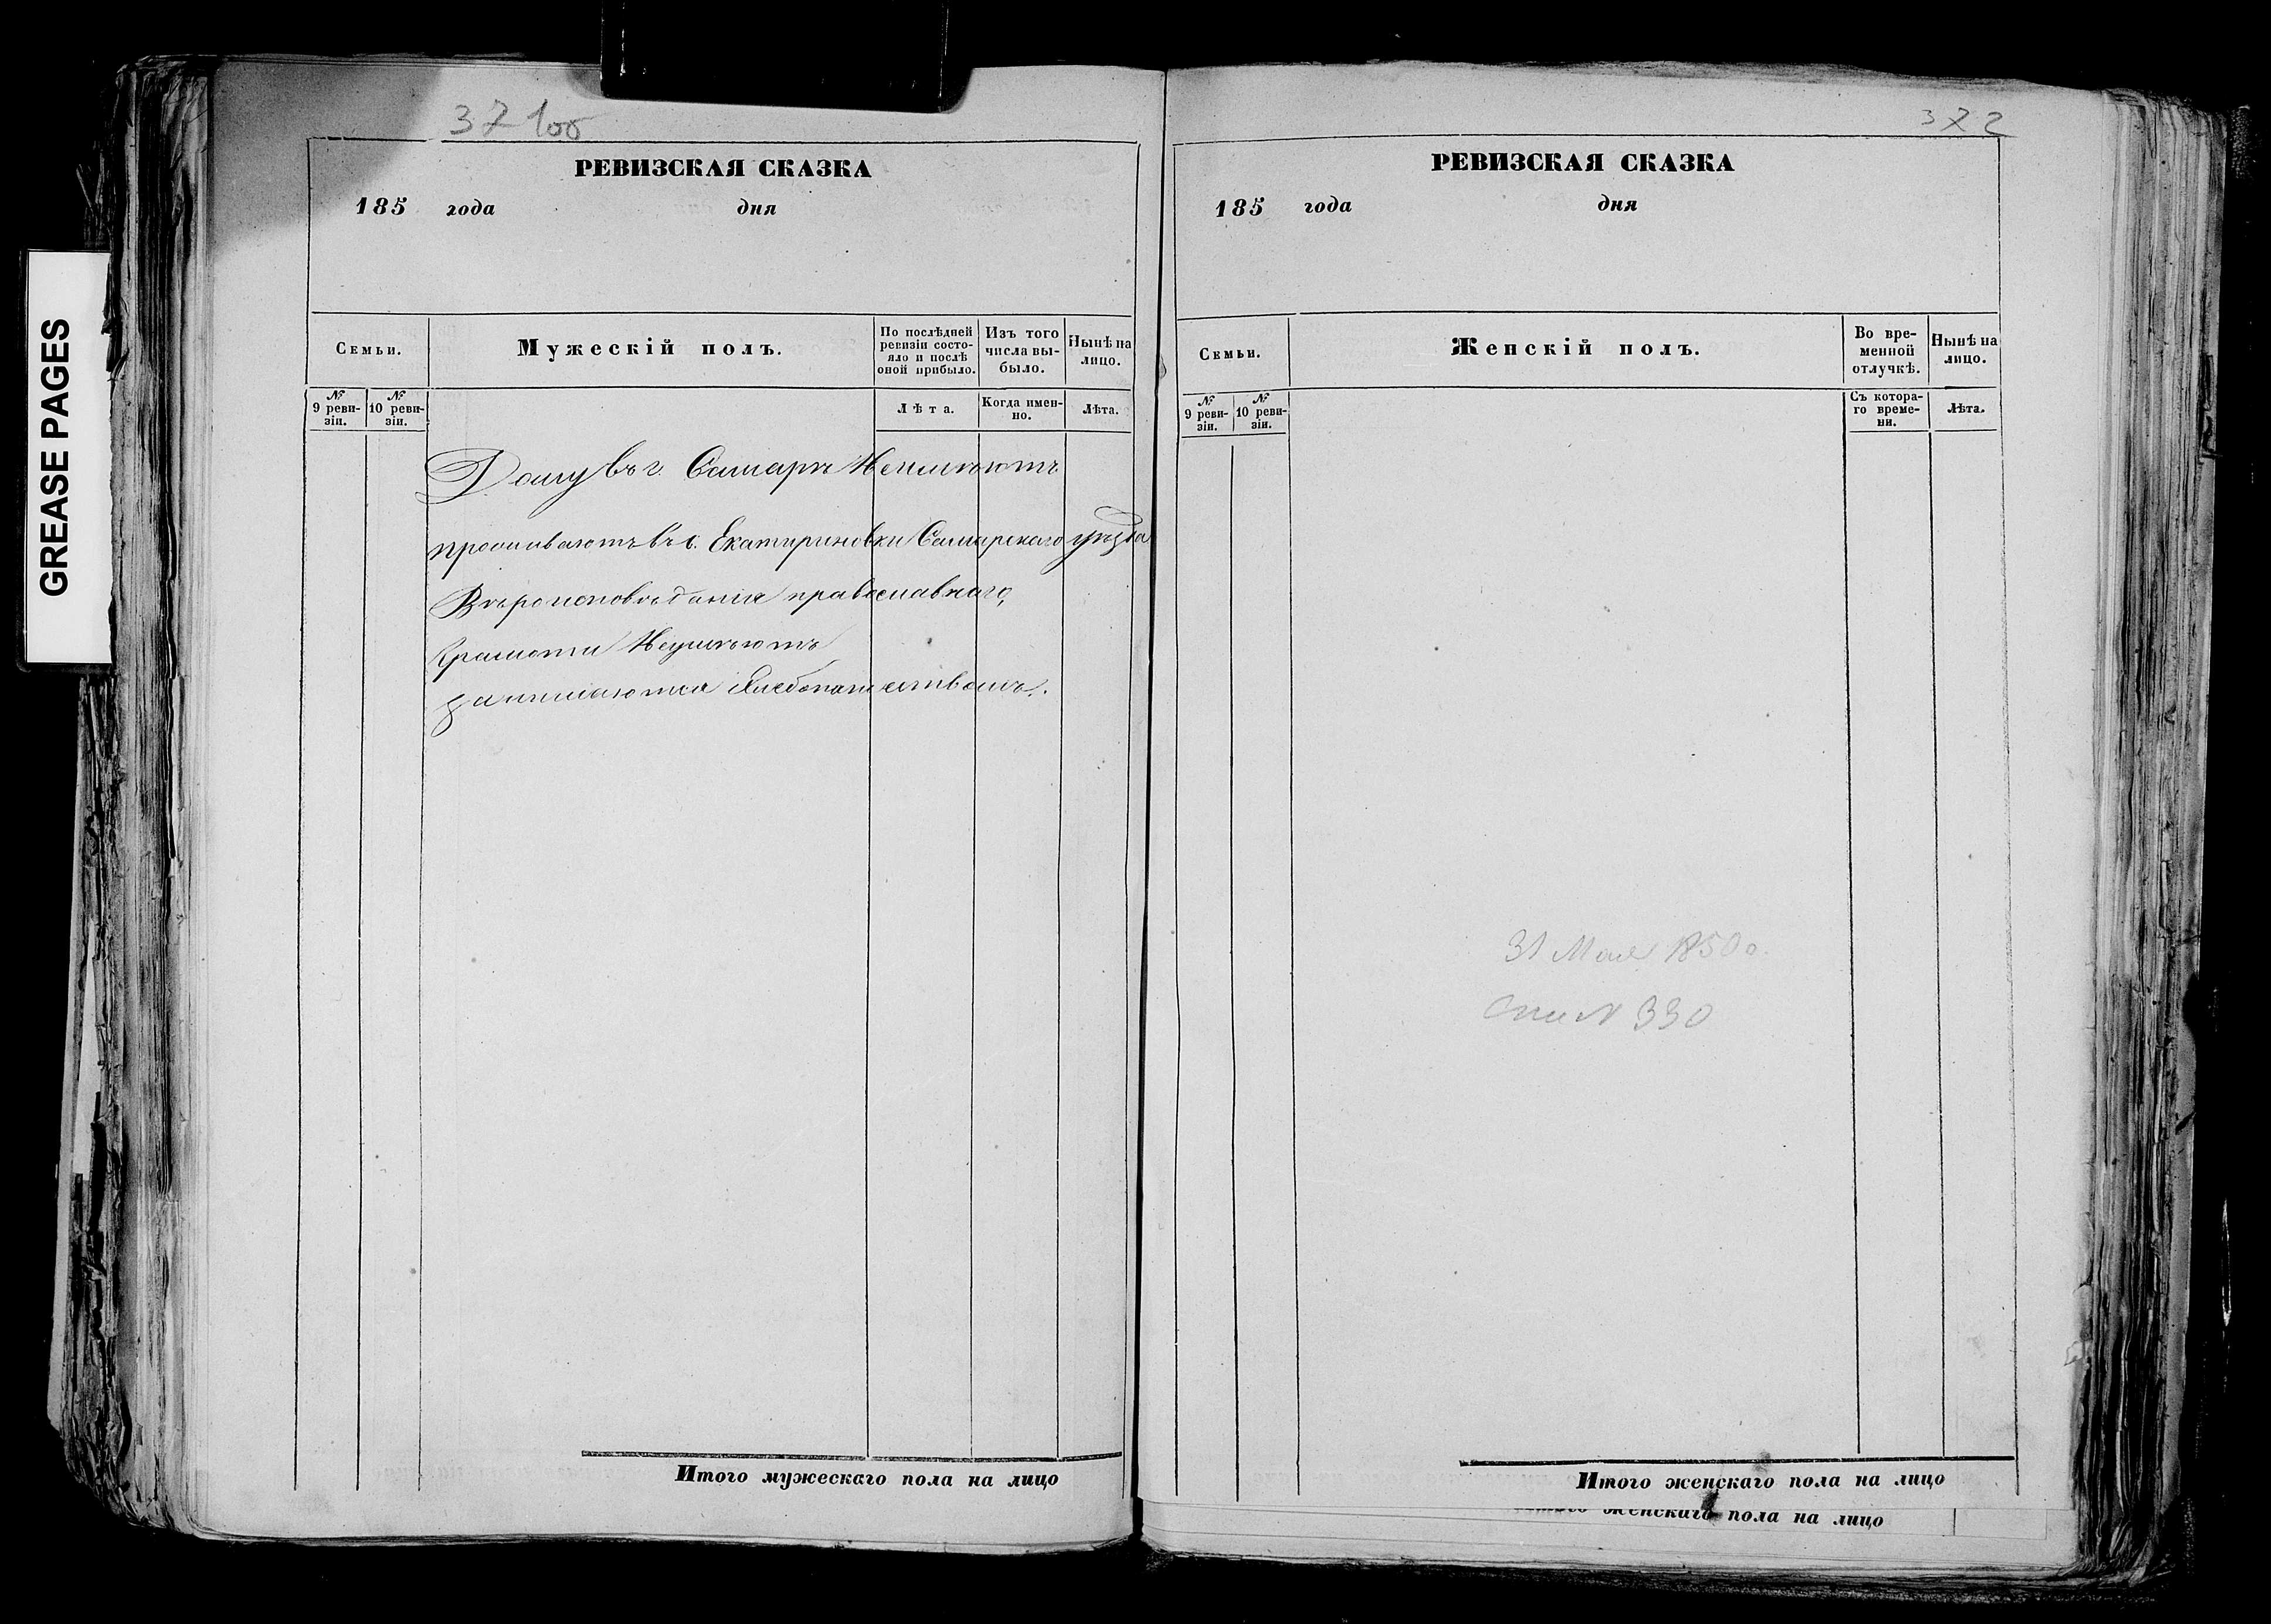 GREASE PAGES
37 100
РЕВИЗСКАЯ СКАЗКА
185 года дня
Семьи.
Мужескій полъ.
По послѣдней ревизіи состояло и послѣ оной прибыло.
Изъ того числа выбыло.
Нынѣ на лицо.
№ 9 ревизіи.
№ 10 ревизіи.
Лѣта.
Когда именно.
Лѣта.
Дому въ г. Самарѣ Неимѣютъ
проживаютъ въ с. Екатириновки Самарскаго уѣзда
Вѣроисповѣданія православнаго,
Грамоти Неумѣютъ
занимаются Хлебопашествомъ.
Итого мужескаго пола на лицо
372
РЕВИЗСКАЯ СКАЗКА
185 года дня
Семьи.
Женскій полъ.
Во временной отлучкѣ.
Нынѣ на лицо.
№ 9 ревизіи.
№ 10 ревизіи.
Съ котораго времени.
Лѣта.
31 Мая 1850
№ 330
Итого женскаго пола на лицо
женскаго пола на лицо